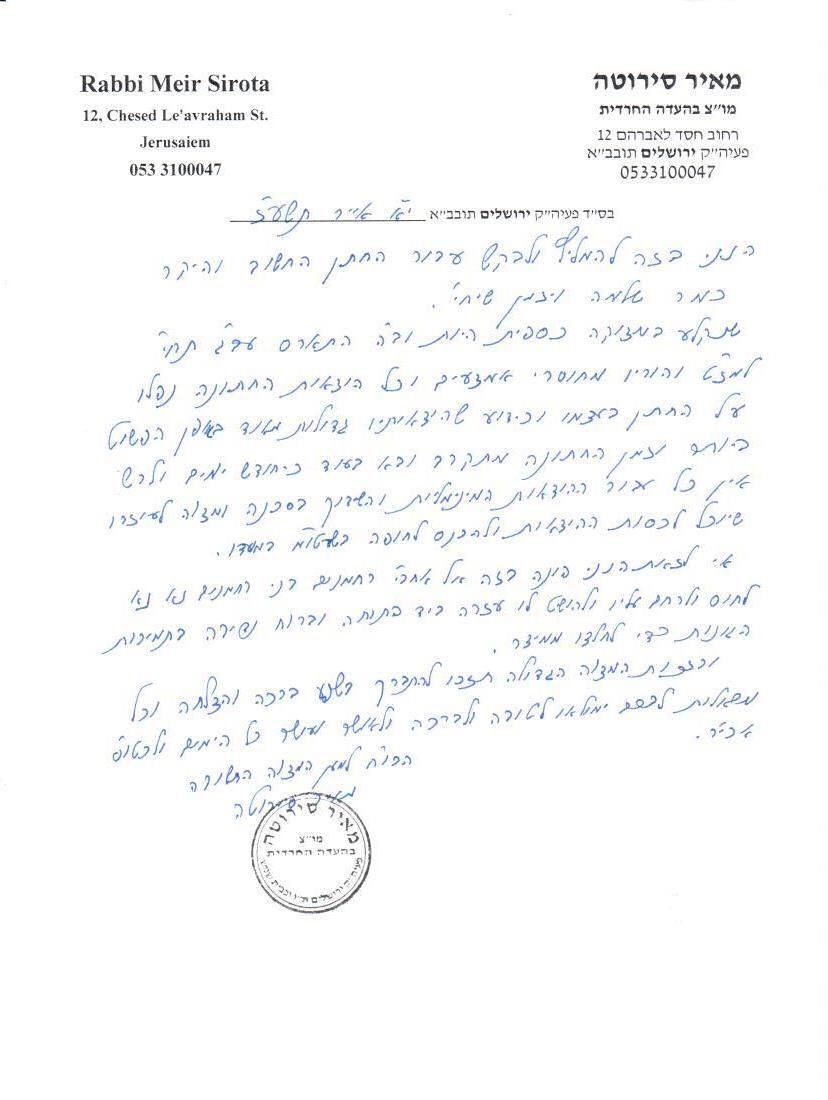 Rabbi Meir Sirota
12, Chesed Le'avraham St.
Jerusaiem
053 3100047
מאיר סירוטה
מו״צ בהעדה החרדית
רחוב חסד לאברהם 12
פעיה״ק ירושלים תובב״א
0533100047
בס״ד פעיה״ק ירושלים תובב״א י״א אייר תשע״ז
הנני בזה להמליץ ולבקש עבור החתן החשוב והיקר
כמר שלמה ויזמן שיחי׳.
שנקלע במצוקה כספית היות וב״ה התארס עב״ג תחי׳
למז״ט והוריו מחוסרי אמצעים וכל הוצאות החתונה נפלו
על החתן בעצמו וכידוע שהיצאותיו גדולות מאוד באפן הפשוט
ביותר וזמן החתונה מתקרב ובא בעוד כחודש ימים ולרש
אין כל עבור ההוצאות המינימליות והשידוך בסכנה ומצוה לעוזרו
שיוכל לכסות ההיצאות ולהכנס לחופה בשעטו״מ במעדו.
אי לזאת הנני פונה בזה אל אחב״י רחמנים בני רחמנים נא נא
לחוס ולרחם עליו ולהושט לו עזרה ביד פתוחה וברוח נדיבה בתמיכות
הגונות כדי לחלצו ממיצר.
ובזכות המצוה הגדולה תזכו להתברך בשפע ברכה והצלחה וכל
משאלות לבכם ימולאו לטובה ולברכה ולאושר ועושר כל הימים ולכטו״ס
אכי״ר.
הכו״ח למען המצוה החשובה
מאיר סירוטה
מאיר סירוטה
מו״צ
בהעדה החרדית
פעיה״ק ירושלים ת״ו